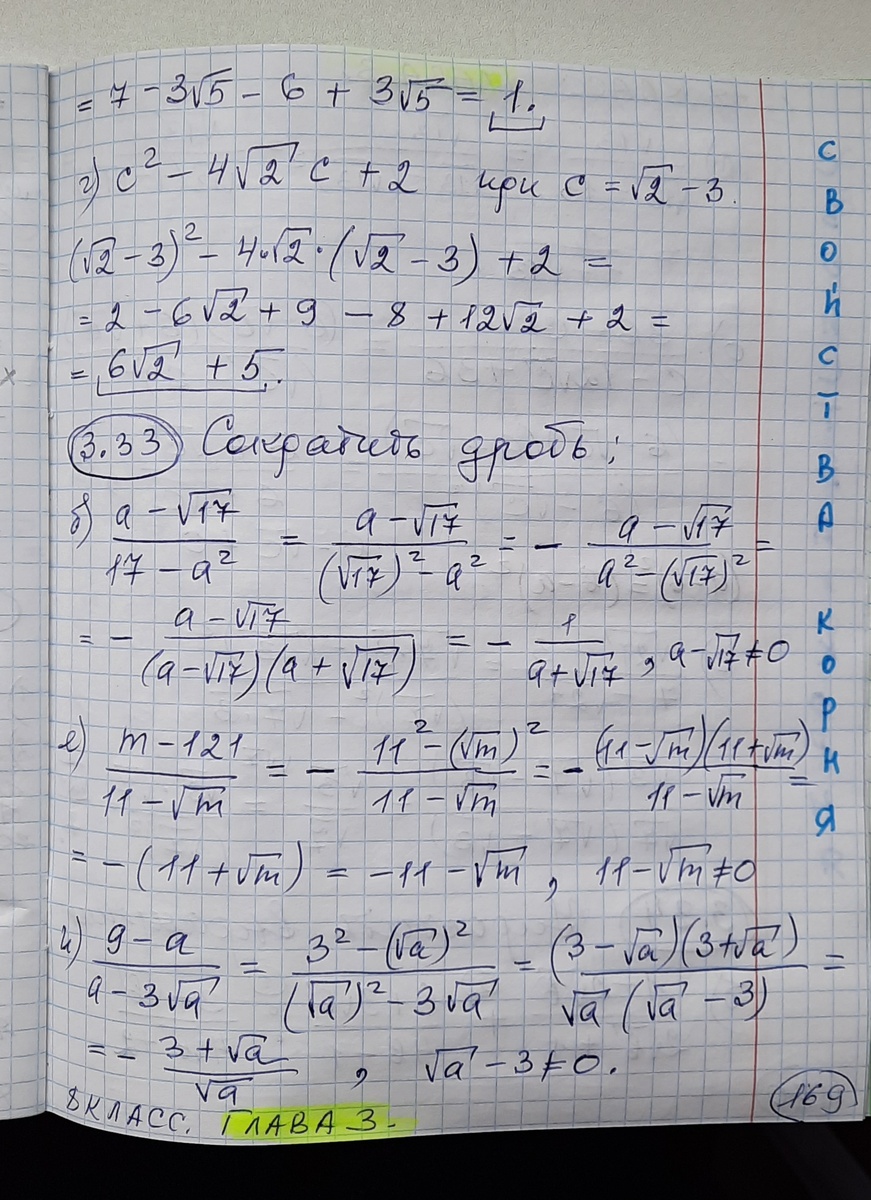 = 7 - 3√5 - 6 + 3√5 = 1.
г) c² - 4√2 c + 2 при c = √2 - 3.
(√2 - 3)² - 4·√2·(√2 - 3) + 2 =
= 2 - 6√2 + 9 - 8 + 12√2 + 2 =
= 6√2 + 5.
3.33 Сократить дробь:
б) (a - √17)/(17 - a²) = (a - √17)/((√17)² - a²) = - (a - √17)/(a² - (√17)²) =
= - (a - √17)/((a - √17)(a + √17)) = - 1/(a + √17), a - √17 ≠ 0
е) (m - 121)/(11 - √m) = - (11² - (√m)²)/(11 - √m) = - ((11 - √m)(11 + √m))/(11 - √m) =
= -(11 + √m) = -11 - √m, 11 - √m ≠ 0
и) (9 - a)/(a - 3√a) = (3² - (√a)²)/((√a)² - 3√a) = ((3 - √a)(3 + √a))/(√a(√a - 3)) =
= - (3 + √a)/√a, √a - 3 ≠ 0.
8 КЛАСС. ГЛАВА 3.
169
СВОЙСТВА КОРНЯ